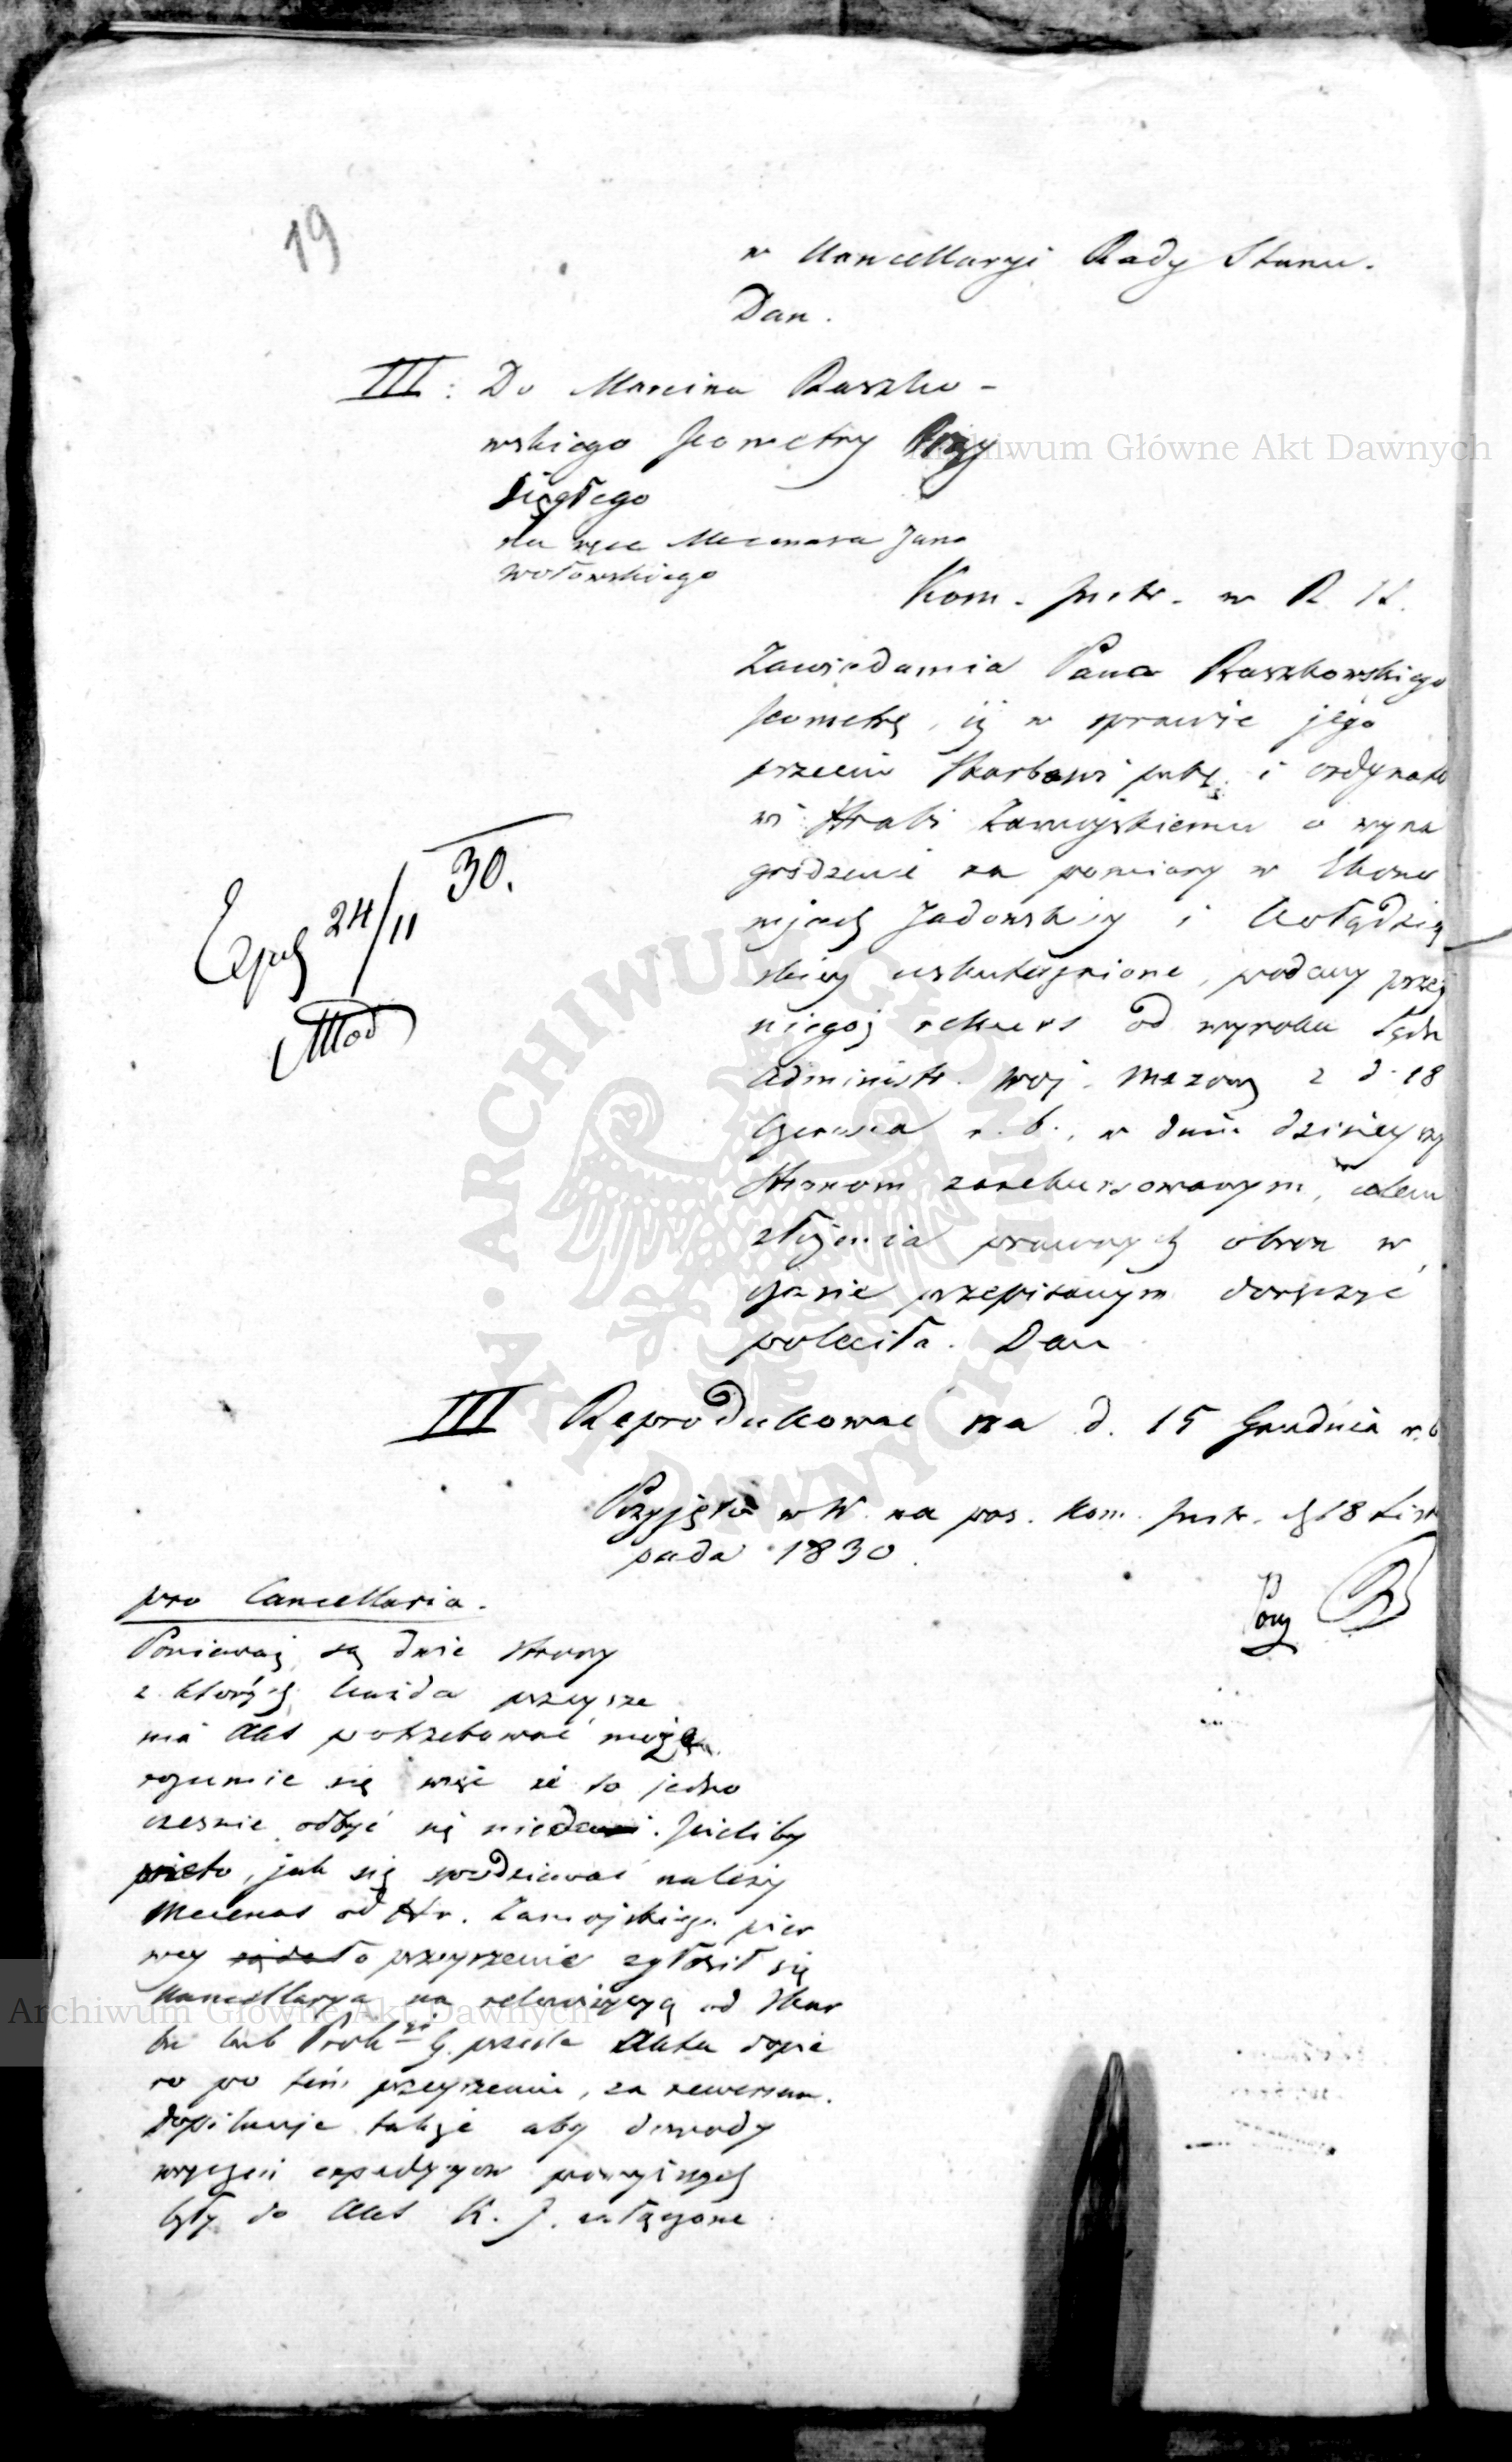 19
w Kancellaryi Rady Stanu.
Dan.
III: Do Marcina Raszko-
wskiego Jeometry Przy
sięgłego
na ręce Mecenasa Jana
Wołowskiego
Kom. Instr. w R. St.
Zawiadamia Pana Raszkowskiego
Jeometrę, iż w sprawie jego
przeciw Skarbowi pub: i ordynato
wi Hrabi Zamoyskiemu o wyna
grodzenie za pomiary w Ekono
mjach Jadowskiey i
skiey uskutecznione, podany przez
niegoż rekurs od wyroku Sądu
Administr. Woj. Mazow z d. 18
Czerwca r. b., w dniu dzisieyszy
Stronom zarekursowanym, celem
złożenia prawnych obron w
czasie przepisanym doręczyć
poleciła. Dan
III Reprodukować na d. 15 Grudnia r. b
Przyjęto w W. na pos. Kom. Instr. d 18 Listo
pada 1830.
Exped 24/11 30.
pro Cancellaria.
Ponieważ są dwie strony
z których każda przeyrze
nia Akt potrzebować może
rozumie się więc że to jedno
cześnie odbyć się nieda. Jeżeliby
przeto, jak się spodziewać należy
Mecenas od Hr. Zamojskiego pier
wey o przeyrzenie zgłosił się
Kancellarya na rekwizycyą od Skar
bu lub Prok G. prześle Akta dopie
ro po tém przeyrzeniu, za rewersem.
Dopilnuje także aby dowody
wręczeń expedycyow powyższych
były do Akt K. J. załączone
Archiwum Główne Akt Dawnych
ARCHIWUM GŁÓWNE AKT DAWNYCH
Archiwum Główne Akt Dawnych